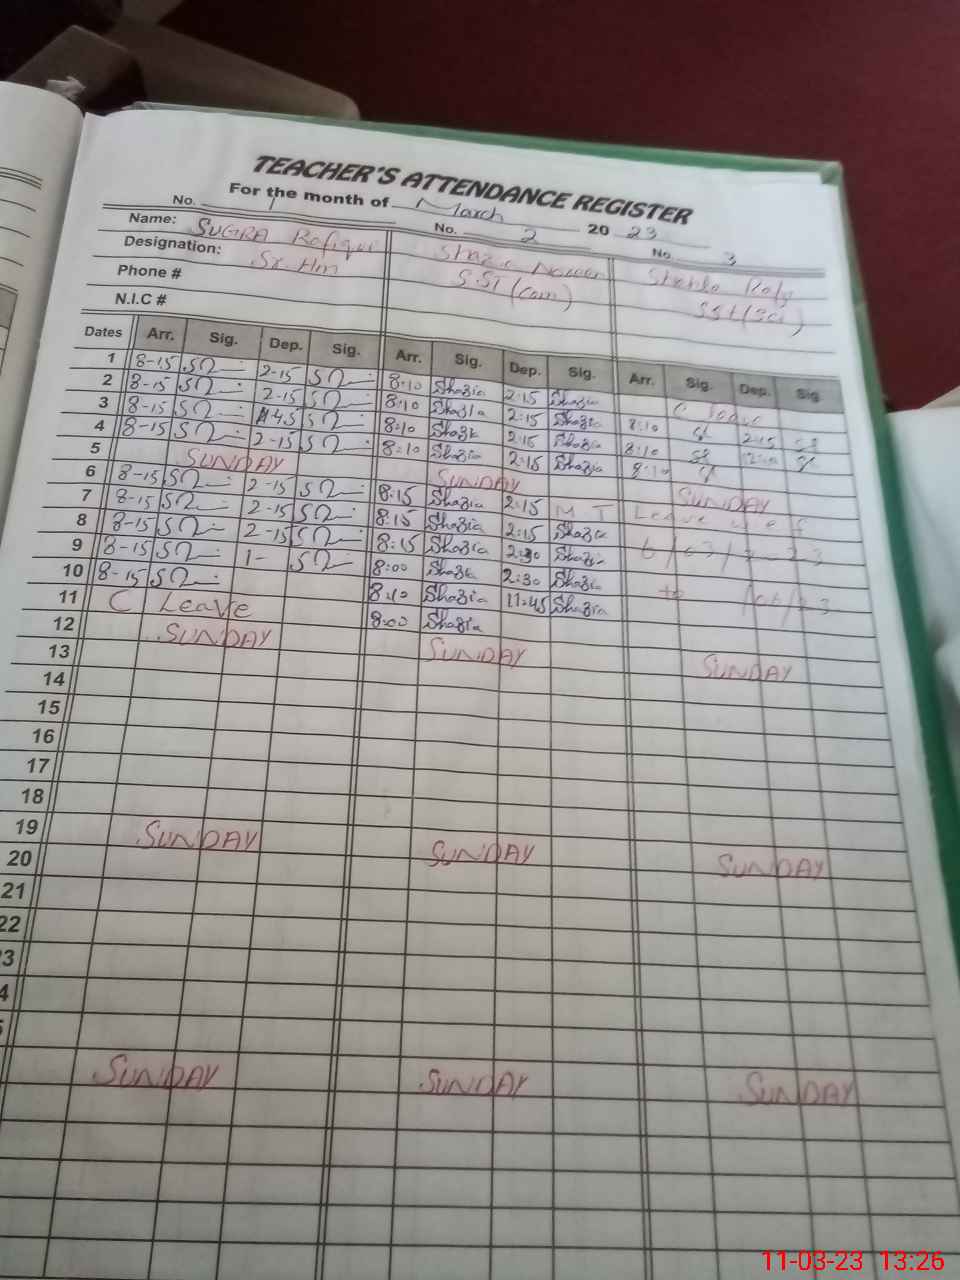 TEACHER'S ATTENDANCE REGISTER
For the month of March 20 23
No. 1 No. 2 No. 3
Name: SUGRA Rafique Shazia Noreen Shehla
Designation: Sr. Hm S.ST (Com) SST (Sci)
Phone #
N.I.C #
Dates Arr. Sig. Dep. Sig. Arr. Sig. Dep. Sig. Arr. Sig. Dep. Sig.
1 8-15 2-15 8:10 Shazia 2:15 Shazia C leave
2 8-15 2-15 8:10 Shazia 2:15 Shazia 8:10 2:15
3 8-15 11-45 8:10 Shazia 2:15 Shazia 8:10
4 8-15 2-15 8:10 Shazia 2:15 Shazia 8:10
5 SUNDAY SUNDAY SUNDAY
6 8-15 2-15 8:15 Shazia 2:15 M T Leave w e f
7 8-15 2-15 8:15 Shazia 2:15 Shazia 6/03/2023
8 8-15 2-15 8:15 Shazia 2:30 Shazia
9 8-15 1- 8:00 Shazia 2:30 Shazia to
10 8-15 8:10 Shazia 11:45 Shazia
11 C Leave 8:00 Shazia
12 SUNDAY SUNDAY SUNDAY
13
14
15
16
17
18
19 SUNDAY SUNDAY SUNDAY
20
21
22
3
4
SUNDAY SUNDAY SUNDAY
11-03-23 13:26